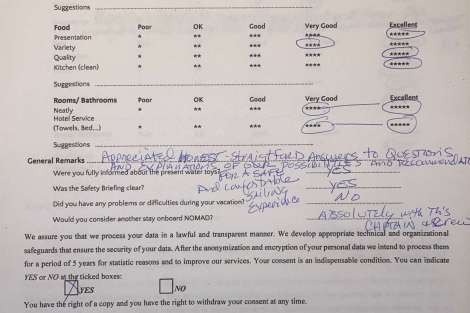 Suggestions
Food Poor OK Good Very Good Excellent
Presentation * ** *** **** *****
Variety * ** *** **** *****
Quality * ** *** **** *****
Kitchen (clean) * ** *** **** *****
Suggestions
Rooms/ Bathrooms Poor OK Good Very Good Excellent
Neatly * ** *** **** *****
Hotel Service
(Towels, Bed...) * ** *** **** *****
Suggestions
General Remarks APPRECIATED HONEST STRAIGTFORD ANSWERS TO QUESTIONS
AND EXPLANATIONS OF OUR POSSIBILITIES AND RECOMMENDATIO
Were you fully informed about the present water toys? FOR A SAFE YES
And comfortable
Was the Safety Briefing clear? Sailing YES
Did you have any problems or difficulties during your vacation? Experience NO
Would you consider another stay onboard NOMAD? ABSOLUTELY with This
CAPTAIN & Crew
We assure you that we process your data in a lawful and transparent manner. We develop appropriate technical and organizational
safeguards that ensure the security of your data. After the anonymization and encryption of your personal data we intend to process them
for a period of 5 years for statistic reasons and to improve our services. Your consent is an indispensable condition. You can indicate
YES or NO at the ticked boxes:
YES NO
You have the right of a copy and you have the right to withdraw your consent at any time.